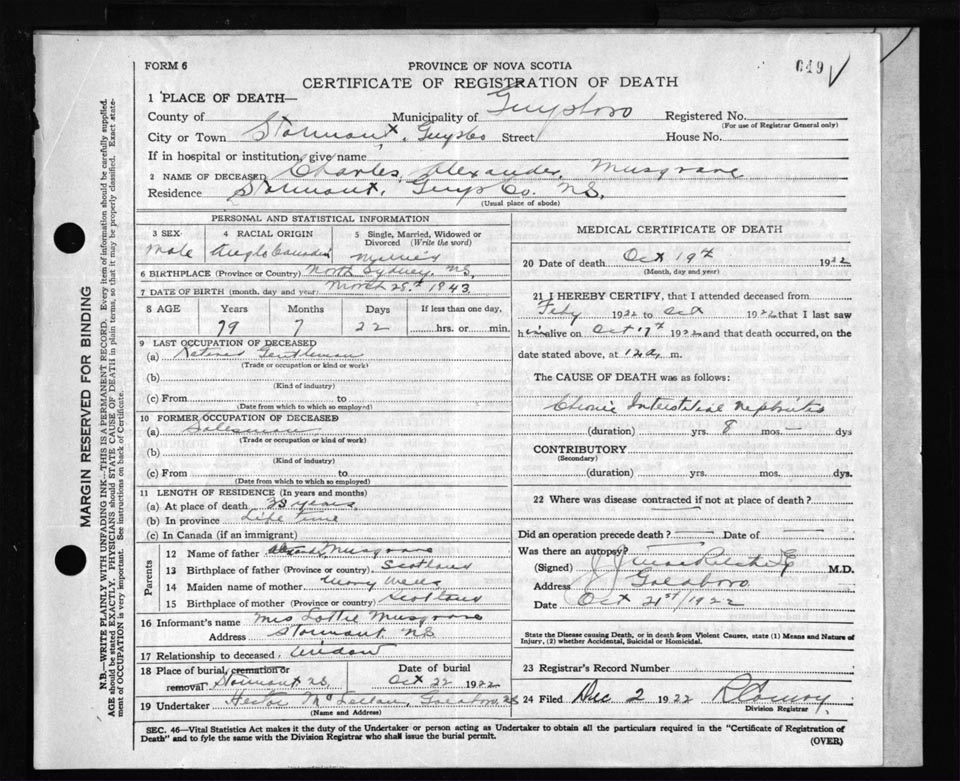 FORM 6
PROVINCE OF NOVA SCOTIA
649 ✓
CERTIFICATE OF REGISTRATION OF DEATH
1 PLACE OF DEATH—
County of Municipality of Guysboro Registered No.
(For use of Registrar General only)
City or Town Stormont, Guysbo Street House No.
If in hospital or institution, give name
2 NAME OF DECEASED Charles Alexander Musgrave
Residence Stormont, Guys Co. N.S.
(Usual place of abode)
PERSONAL AND STATISTICAL INFORMATION
3 SEX Male
4 RACIAL ORIGIN Anglo Canadian
5 Single, Married, Widowed or Divorced (Write the word) Married
6 BIRTHPLACE (Province or Country) North Sydney, N.S.
7 DATE OF BIRTH (month, day and year) March 25th 1843
8 AGE Years Months Days If less than one day,
79 7 22 hrs. or min.
9 LAST OCCUPATION OF DECEASED
(a) Retired Gentleman
(Trade or occupation or kind or work)
(b)
(Kind of industry)
(c) From to
(Date from which to which so employed)
10 FORMER OCCUPATION OF DECEASED
(a) Salesman
(Trade or occupation or kind of work)
(b)
(Kind of industry)
(c) From to
(Date from which to which so employed)
11 LENGTH OF RESIDENCE (In years and months)
(a) At place of death years
(b) In province Life Time
(c) In Canada (if an immigrant)
Parents
12 Name of father Musgrave
13 Birthplace of father (Province or country) Scotland
14 Maiden name of mother Mary Wells
15 Birthplace of mother (Province or country) Scotland
16 Informant's name Mrs Lottie Musgrave
Address Stormont, N.S.
17 Relationship to deceased Widow
18 Place of burial, cremation or removal Stormont N.S. Date of burial Oct 22 1922
19 Undertaker Hector McLellan, Goldboro, N.S.
(Name and Address)
MEDICAL CERTIFICATE OF DEATH
20 Date of death Oct 19th 1922
(Month, day and year)
21 I HEREBY CERTIFY, that I attended deceased from
Feby 1922 to Oct 1922 that I last saw
him alive on Oct 17th 1922 and that death occurred, on the
date stated above, at 12 a. m.
The CAUSE OF DEATH was as follows:
Chronic Interstitial Nephritis
(duration) yrs. 8 mos. — dys
CONTRIBUTORY
(Secondary)
(duration) yrs. mos. dys.
22 Where was disease contracted if not at place of death?
Did an operation precede death? Date of
Was there an autopsy?
(Signed) M.D.
Address Goldboro
Date Oct 21st/1922
State the Disease causing Death, or in death from Violent Causes, state (1) Means and Nature of
Injury, (2) whether Accidental, Suicidal or Homicidal.
23 Registrar's Record Number
24 Filed Dec 2 1922
Division Registrar
SEC. 46—Vital Statistics Act makes it the duty of the Undertaker or person acting as Undertaker to obtain all the particulars required in the "Certificate of Registration of
Death" and to fyle the same with the Division Registrar who shall issue the burial permit.
(OVER)
MARGIN RESERVED FOR BINDING
N.B.—WRITE PLAINLY WITH UNFADING INK—THIS IS A PERMANENT RECORD. Every item of information should be carefully supplied.
AGE should be stated EXACTLY. PHYSICIANS should STATE CAUSE OF DEATH in plain terms, so that it may be properly classified. Exact state-
ment of OCCUPATION is very important. See instructions on back of Certificate.